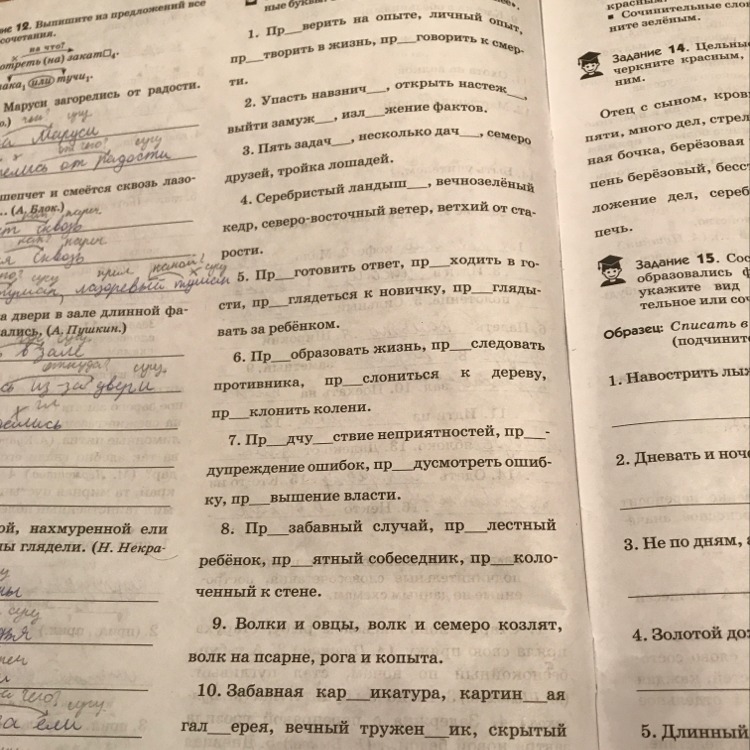 ние 12. Выпишите из предложений все
сочетания.
на что?
отреть (на) закат
или тучи
Маруси загорелись от радости.
Маруси
от радости
шепчет и смеётся сквозь лазо-
(А. Блок.)
сквозь
сквозь
лазоревый туман
а двери в зале длинной фа-
ались. (А. Пушкин.)
в зале
откуда? сущ.
из-за двери
ой, нахмуренной ели
ны глядели. (Н. Некра-
ели
ные букв
1. Пр__верить на опыте, личный опыт,
пр__творить в жизнь, пр__говорить к смер-
ти.
2. Упасть навзнич__, открыть настеж__,
выйти замуж__, изл__жение фактов.
3. Пять задач__, несколько дач__, семеро
друзей, тройка лошадей.
4. Серебристый ландыш__, вечнозелёный
кедр, северо-восточный ветер, ветхий от ста-
рости.
5. Пр__готовить ответ, пр__ходить в го-
сти, пр__глядеться к новичку, пр__гляды-
вать за ребёнком.
6. Пр__образовать жизнь, пр__следовать
противника, пр__слониться к дереву,
пр__клонить колени.
7. Пр__дчу__ствие неприятностей, пр__-
дупреждение ошибок, пр__дусмотреть ошиб-
ку, пр__вышение власти.
8. Пр__забавный случай, пр__лестный
ребёнок, пр__ятный собеседник, пр__коло-
ченный к стене.
9. Волки и овцы, волк и семеро козлят,
волк на псарне, рога и копыта.
10. Забавная кар__икатура, картин__ая
гал__ерея, вечный тружен__ик, скрытый
красным
■ Сочинительные сло
ните зелёным.
Задание 14. Цельны
черкните красным,
ним.
Отец с сыном, кров
пяти, много дел, стрел
ная бочка, берёзовая
пень берёзовый, бесс
ложение дел, сереб
печь.
Задание 15. Сос
образовались ф
укажите вид
тельное или соч
Образец: Списать в
(подчините
1. Навострить лыж
2. Дневать и ноче
3. Не по дням, а
4. Золотой дож
5. Длинный